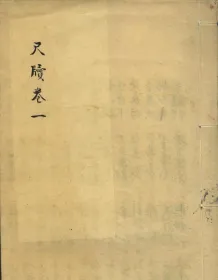 尺牘卷一